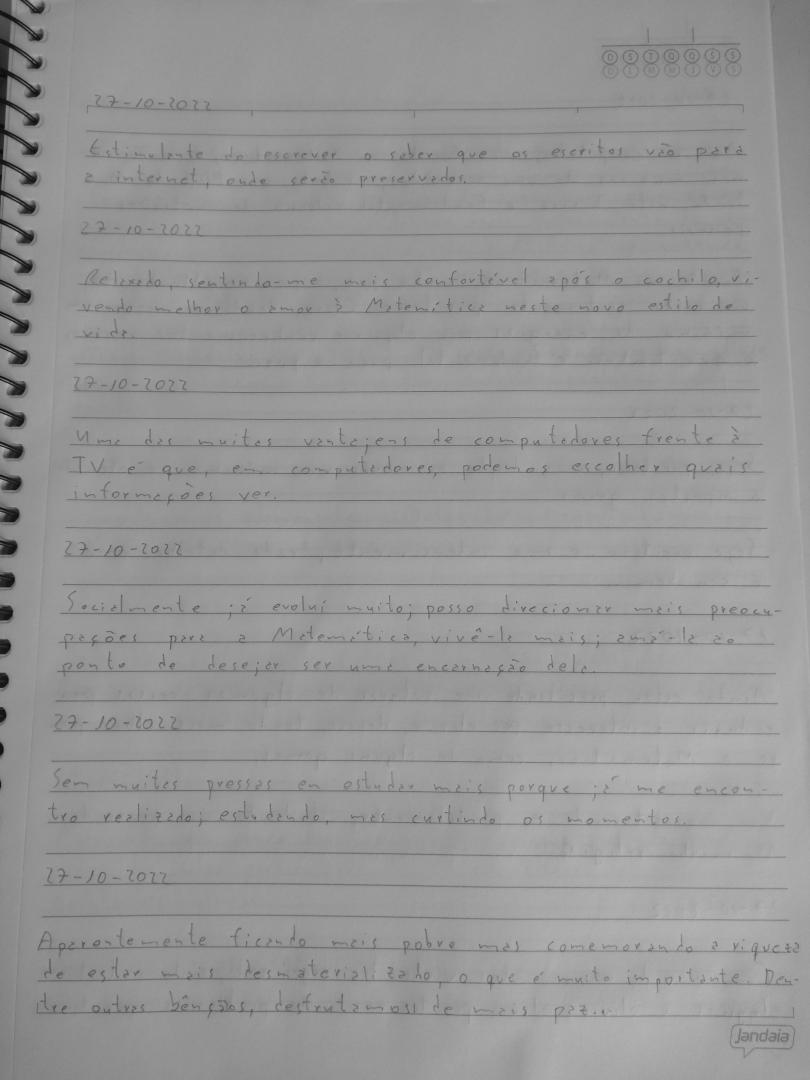 D S T Q Q S S
D L M M J V S
27-10-2022
Estimulante do escrever o saber que os escritos vão para
a internet, onde serão preservados.
27-10-2022
Relaxado, sentindo-me mais confortável após o cochilo, vi-
vendo melhor o amor à Matemática neste novo estilo de
vida.
27-10-2022
Uma das muitas vantajens de computadores frente à
TV é que, em computadores, podemos escolher quais
informações ver.
27-10-2022
Socialmente já evoluí muito; posso direcionar mais preocu-
pações para a Matemática, vivê-la mais; amá-la ao
ponto de desejar ser uma encarnação dela.
27-10-2022
Sem muitas pressas en estudar mais porque já me encon-
tro realizado; estudando, mas curtindo os momentos.
27-10-2022
Aparentemente ficando mais pobre mas comemorando a riqueza
de estar mais desmaterializado, o que é muito importante. Den-
tre outras bênçãos, desfrutamos de mais paz.
Jandaia